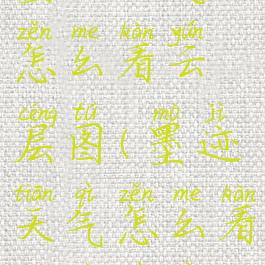 zěn me kàn yún
怎么看云
céng tú mò jì
层图(墨迹
tiān qì zěn me kàn
天气怎么看